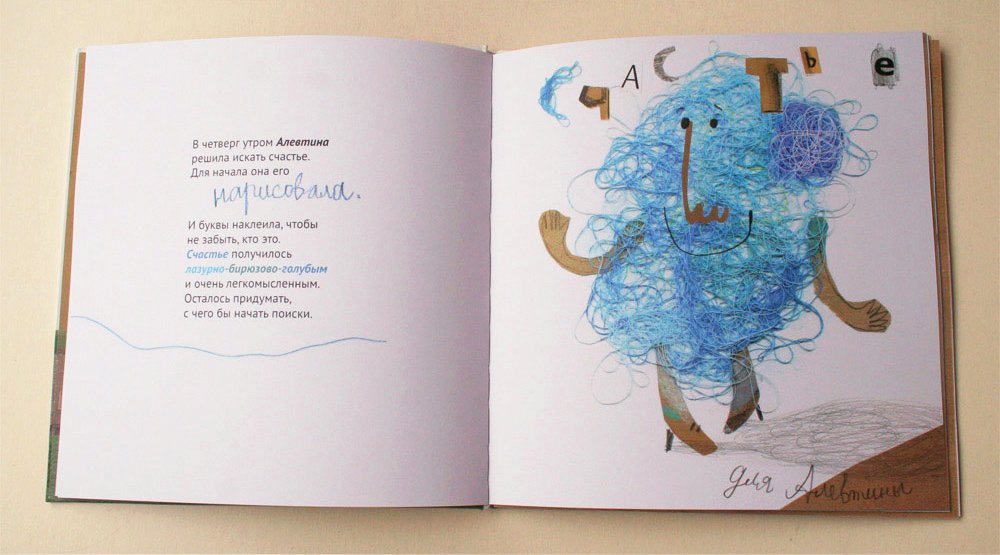 В четверг утром Алевтина
решила искать счастье.
Для начала она его
нарисовала.
И буквы наклеила, чтобы
не забыть, кто это.
Счастье получилось
лазурно-бирюзово-голубым
и очень легкомысленным.
Осталось придумать,
с чего бы начать поиски.
СчАСТЬе
для Алевтины